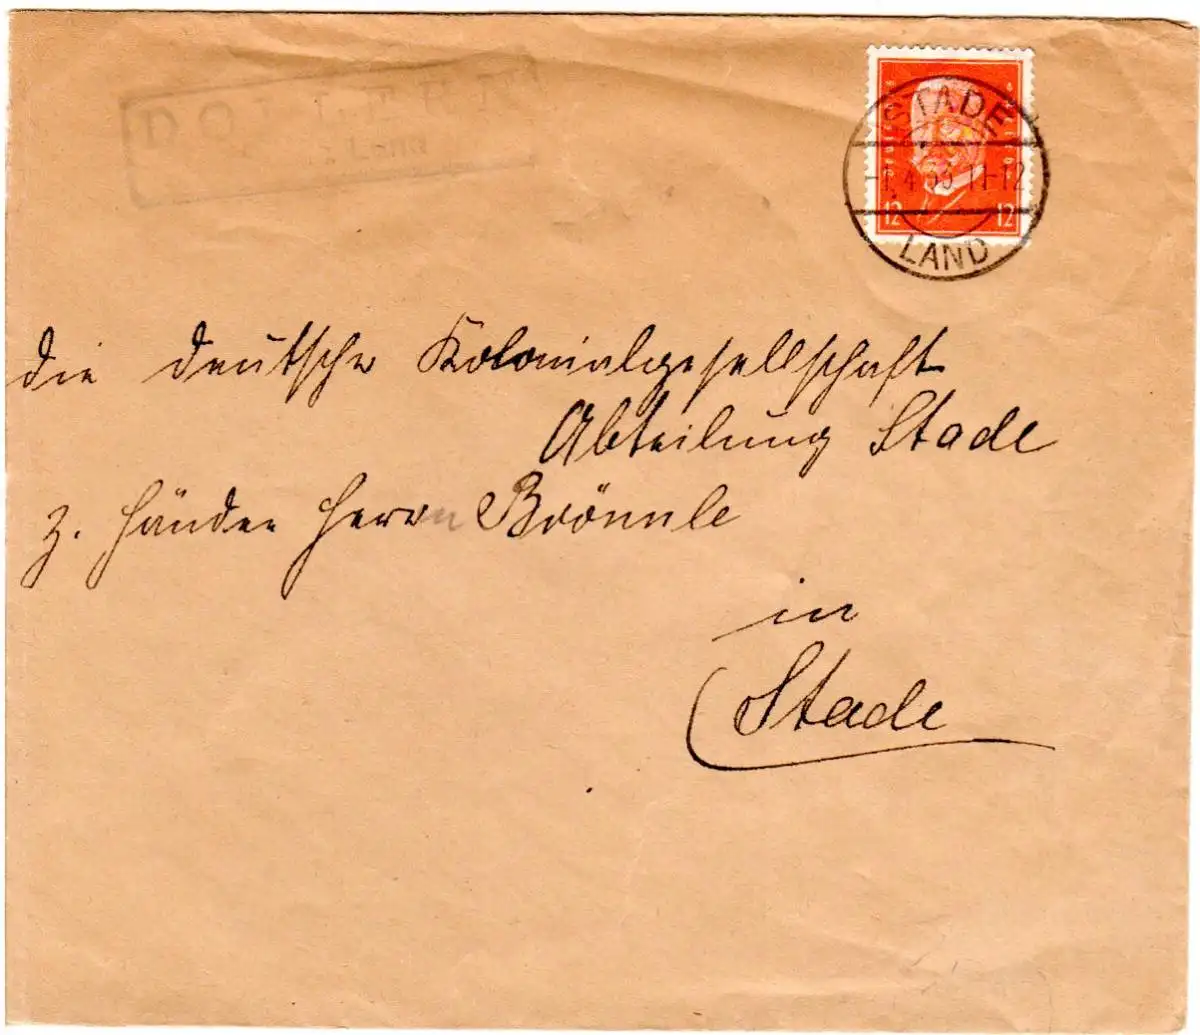 DOLLERN
Land
STADE
-1.4.33 11-12
LAND
12 12
die deutsche Kolonialgesellschaft
Abteilung Stade
z. Händen Herrn Brönnle
in
Stade